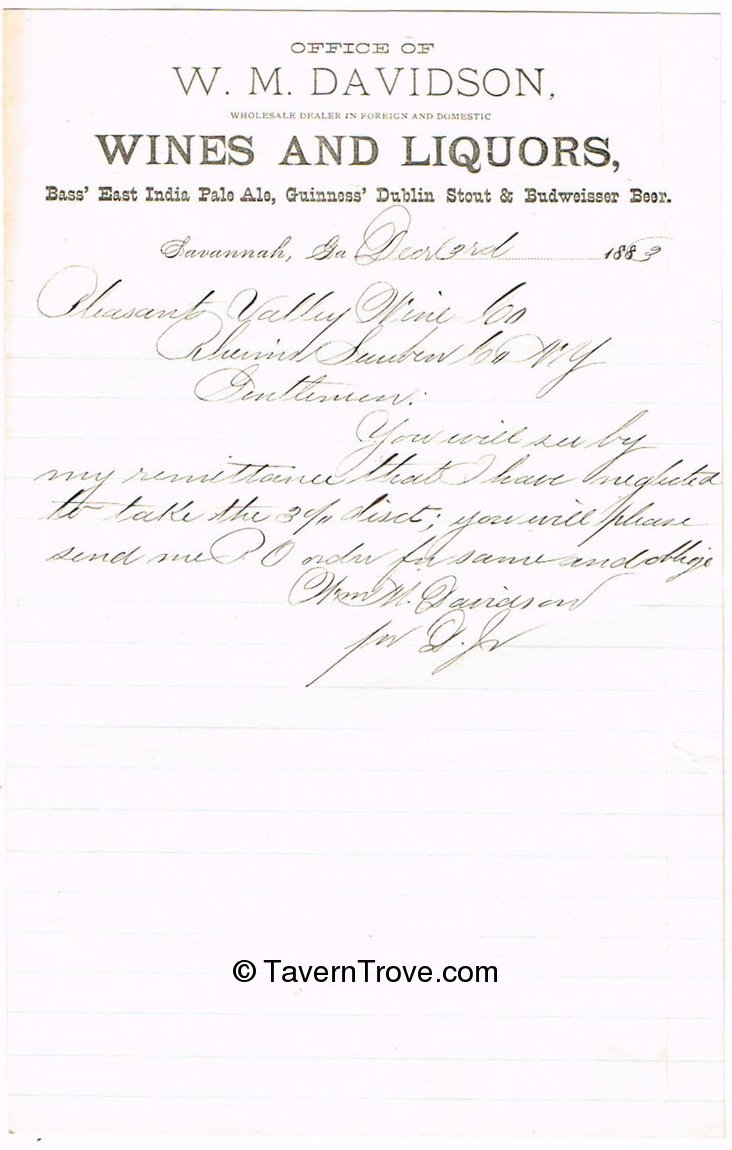 OFFICE OF
W. M. DAVIDSON,
WHOLESALE DEALER IN FOREIGN AND DOMESTIC
WINES AND LIQUORS,
Bass' East India Pale Ale, Guinness' Dublin Stout & Budweisser Beer.
Savannah, Ga Decr 3rd 1883
Pleasant Valley Wine Co
Rheims Steuben Co N Y
Gentlemen:
You will see by
my remittance that I have neglected
to take the 3% disct; you will please
send me P O order for same and oblige
Wm M. Davidson
pr D. Jr
© TavernTrove.com